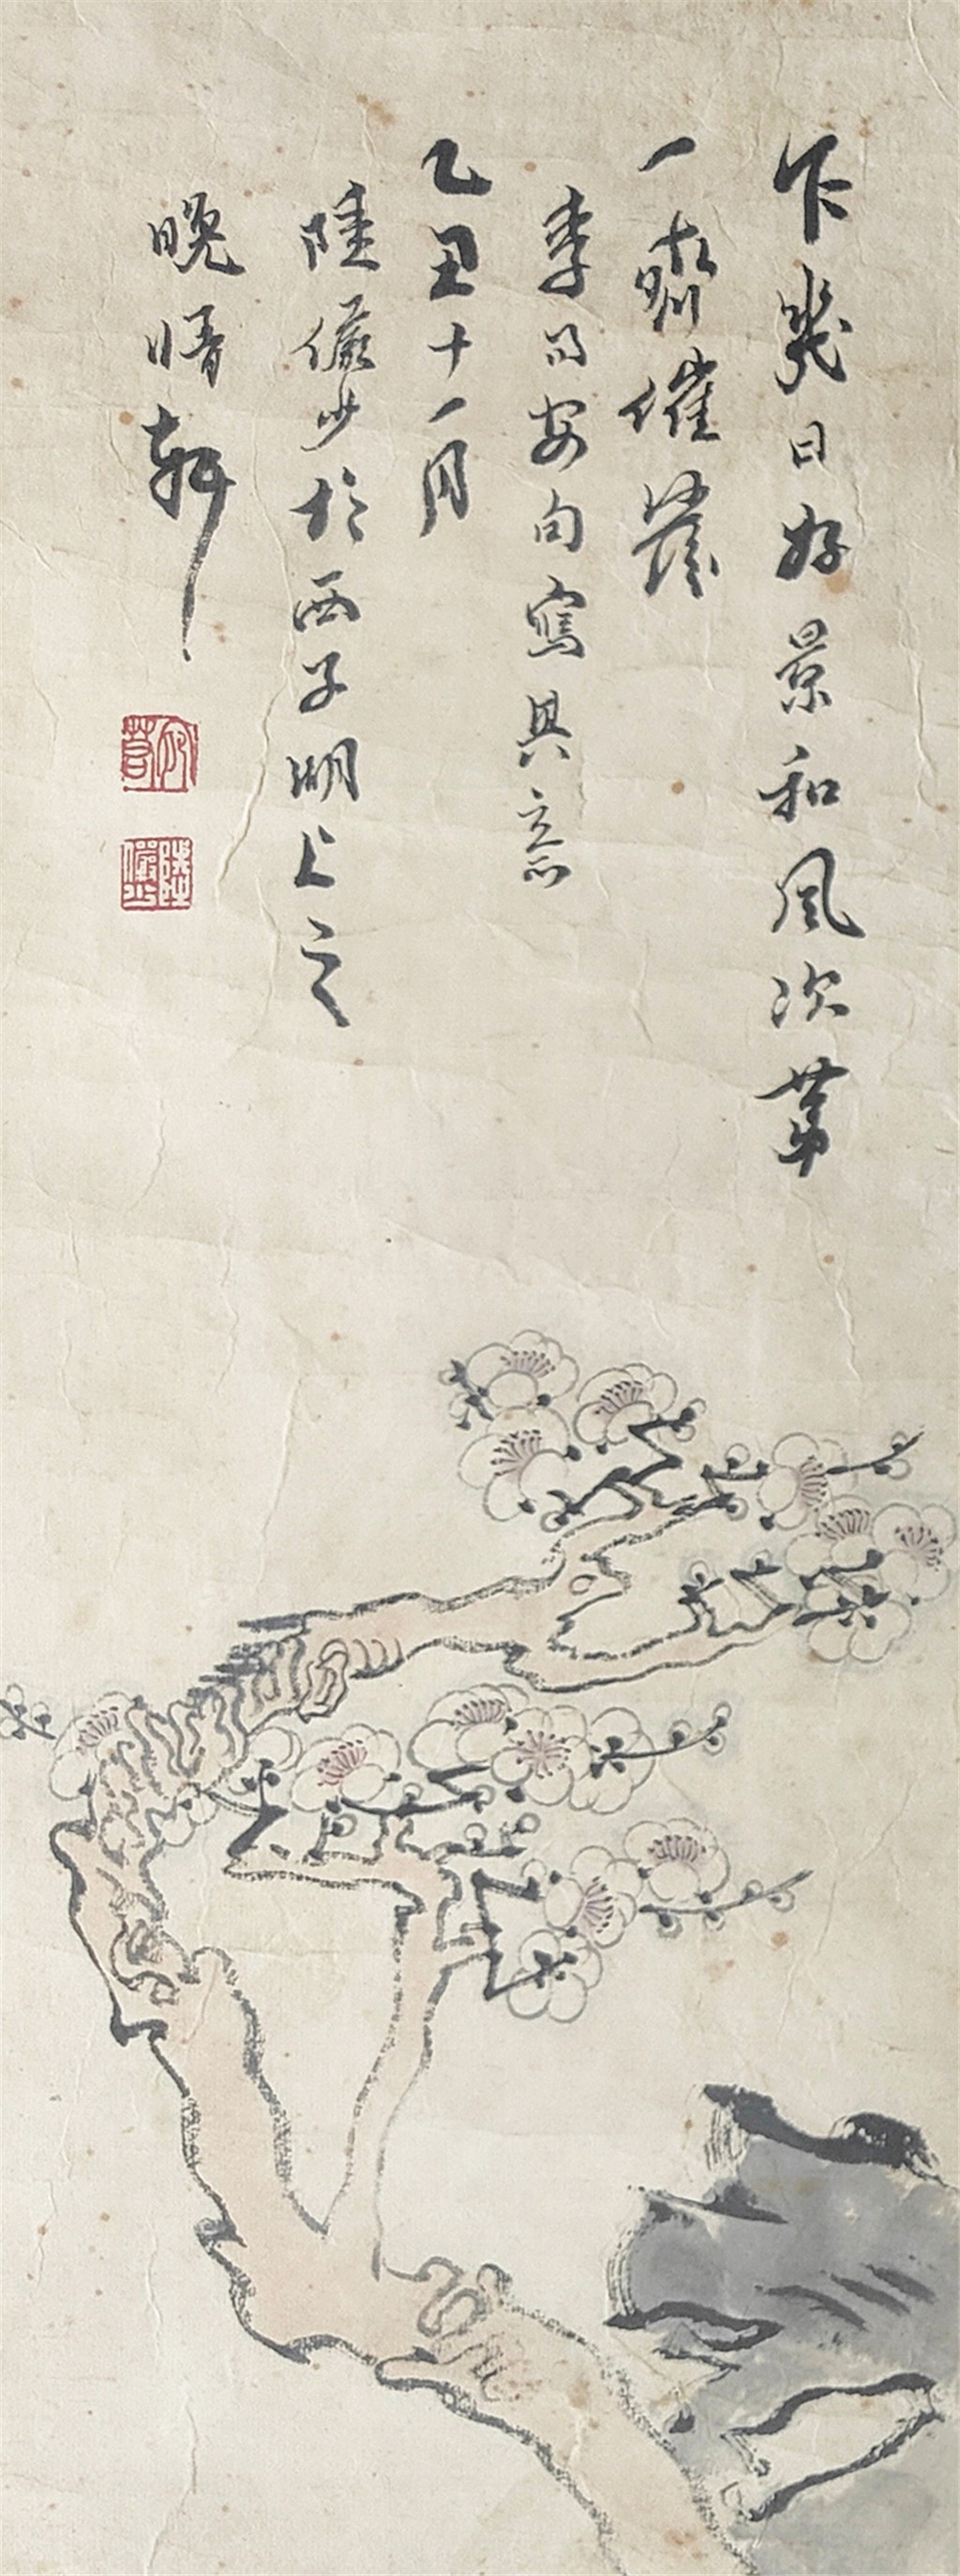 乍幾日好景和風次第
一齊催發
李易安句寫其意
乙丑十一月
陸儼少於西子湖上之
晚晴軒
宛若
陸儼少